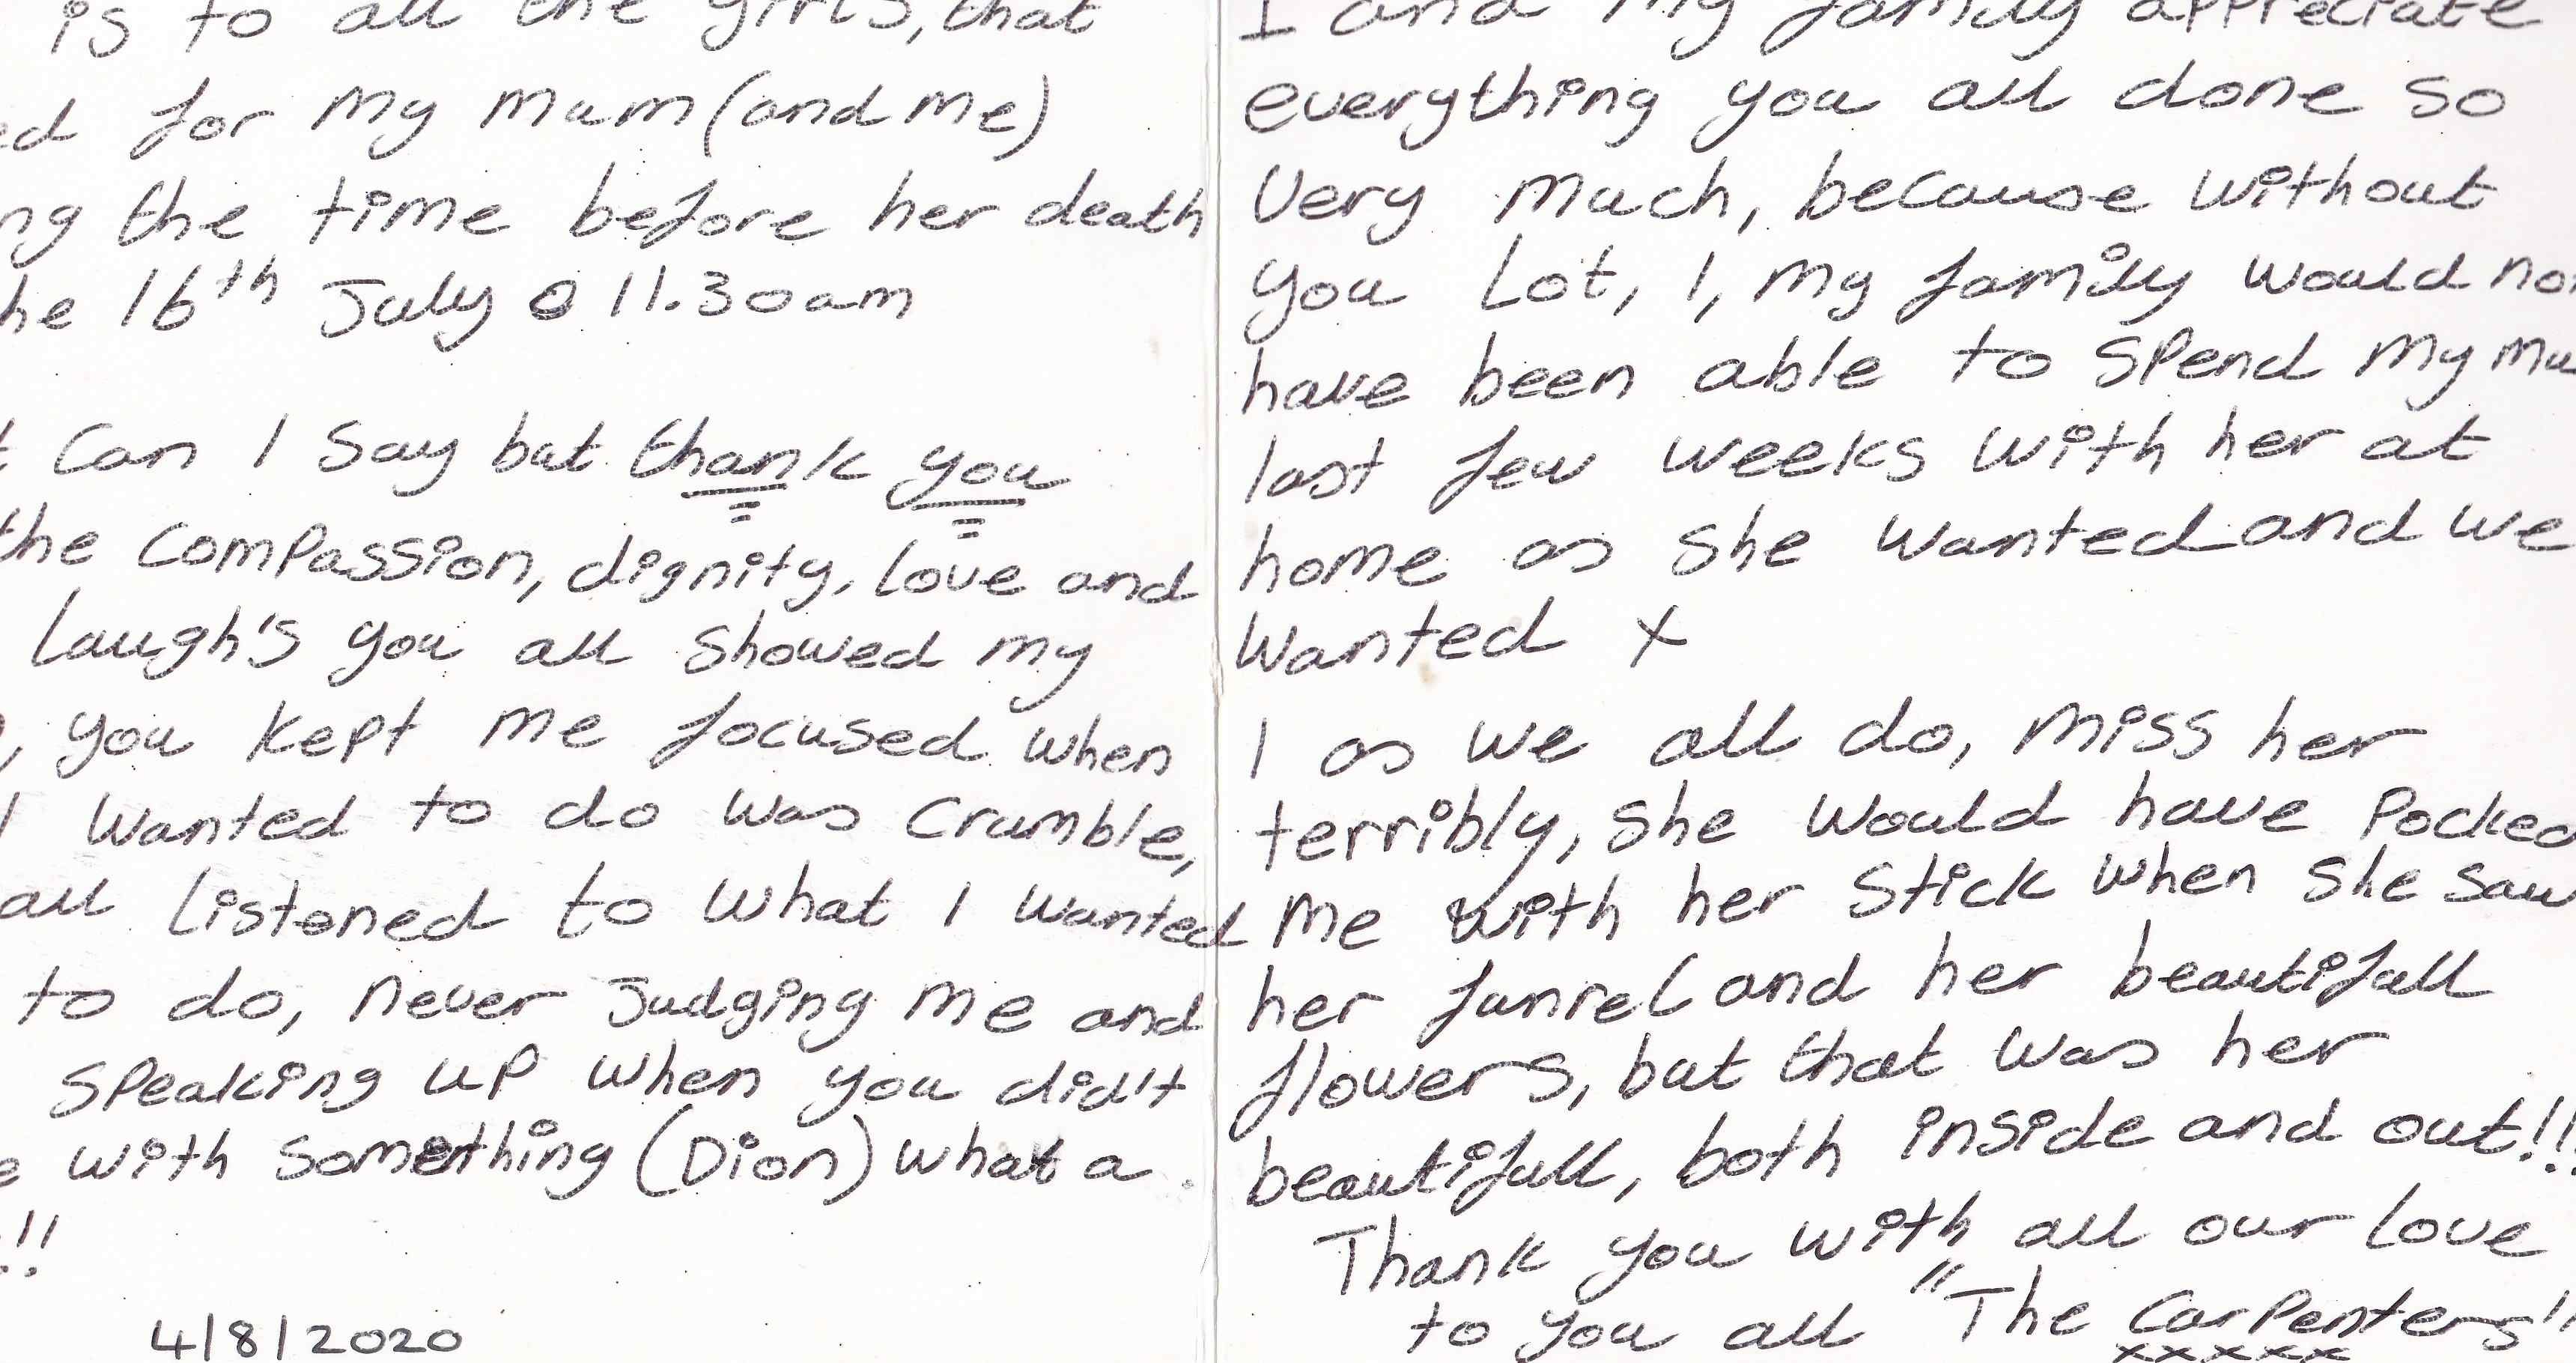 is to all the girls, that
ed for my mum (and me)
ng the time before her death
he 16th July @ 11.30am
t can I say but thank you
the compassion, dignity, love and
laugh's you all showed my
, you kept me focused when
I wanted to do was crumble,
all listened to what I wanted
to do, never judging me and
speaking up when you did't
e with something (Dion) what a
!!
4/8/2020
I and my family appreciate
everything you all done so
very much, because without
you lot, I, my family would not
have been able to spend my mu
last few weeks with her at
home as she wanted and we
wanted x
I as we all do, miss her
terribly, she would have pocked
me with her stick when she saw
her funrel and her beautifull
flowers, but that was her
beautifull, both inside and out!!
Thank you with all our love
to you all "The Carpenters"
xxxxx